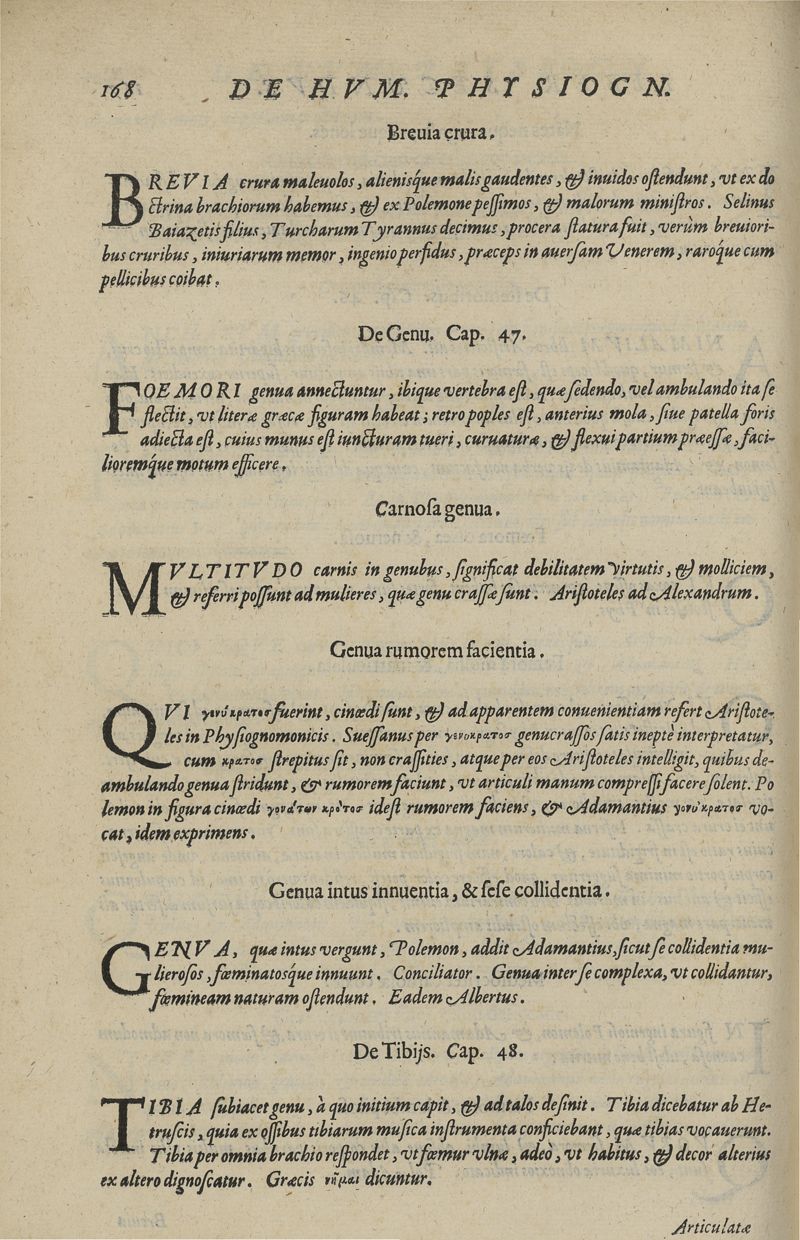 168 DE HVM. PHYSIOGN.
Breuia crura.
BREVIA crura maleuolos, alienisq́ue malis gaudentes, & inuidos ostendunt, vt ex do
ctrina brachiorum habemus, & ex Polemone pessimos, & malorum ministros. Selinus
Baiazetis filius, Turcharum Tyrannus decimus, procera statura fuit, verùm breuiori-
bus cruribus, iniuriarum memor, ingenio perfidus, præceps in auersam Venerem, raroq́ue cum
pellicibus coibat.
De Genu. Cap. 47.
FOEMORI genua annectuntur, ibique vertebra est, quæ sedendo, vel ambulando ita se
flectit, vt literæ græcæ figuram habeat; retro poples est, anterius mola, siue patella foris
adiecta est, cuius munus est iuncturam tueri, curuaturæ, & flexui partium præesse, faci-
lioremq́ue motum efficere.
Carnosa genua.
MVLTITVDO carnis in genubus, significat debilitatem virtutis, & molliciem,
& referri possunt ad mulieres, quæ genu crassæ sunt. Aristoteles ad Alexandrum.
Genua rumorem facientia.
QVI γονύκρατοσ fuerint, cinœdi sunt, & ad apparentem conuenientiam refert Aristote-
les in Physiognomonicis. Suessanus per γονυκρατοσ genucrassos satis ineptè interpretatur,
cum κρατοσ strepitus sit, non crassities, atque per eos Aristoteles intelligit, quibus de-
ambulando genua stridunt, & rumorem faciunt, vt articuli manum compressi facere solent. Po
lemon in figura cinœdi γονάτων κρότοσ idest rumorem faciens, & Adamantius γονύκρατοσ vo-
cat, idem exprimens.
Genua intus innuentia, & sese collidentia.
GENVA, quæ intus vergunt, Polemon, addit Adamantius, sicut se collidentia mu-
lierosos, fœminatosque innuunt. Conciliator. Genua inter se complexa, vt collidantur,
fœmineam naturam ostendunt. Eadem Albertus.
De Tibijs. Cap. 48.
TIBIA subiacet genu, à quo initium capit, & ad talos desinit. Tibia dicebatur ab He-
truscis, quia ex ossibus tibiarum musica instrumenta conficiebant, quæ tibias vocauerunt.
Tibia per omnia brachio respondet, vt fœmur vlnæ, adeò, vt habitus, & decor alterius
ex altero dignoscatur. Græcis κνῆμαι dicuntur.
Articulatæ